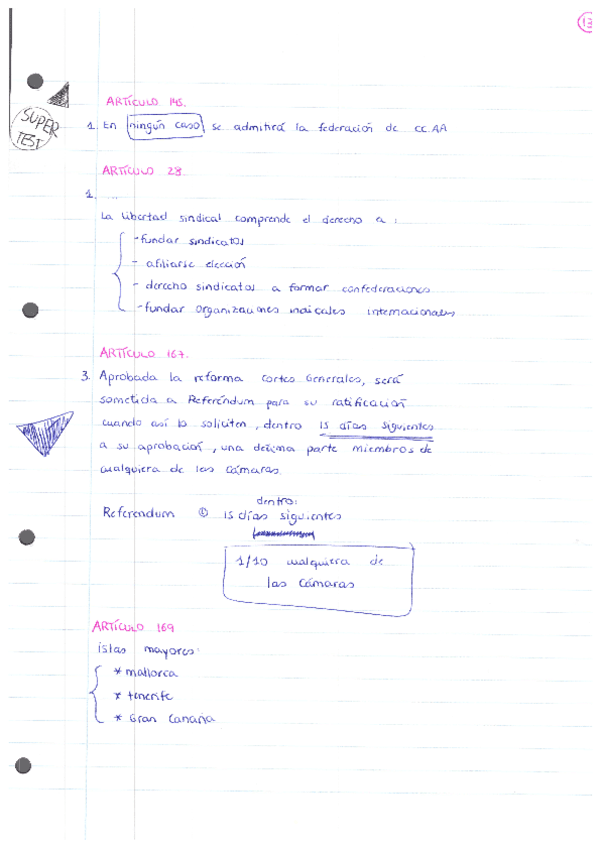 13
SUPER
TEST
ARTÍCULO 145.
1. En ningún caso se admitirá la federación de CCAA
ARTÍCULO 28
1. ...
La libertad sindical comprende el derecho a :
- fundar sindicatos
- afiliarse elección
- derecho sindicatos a formar confederaciones
- fundar organizaciones indicales internacionales
ARTÍCULO 167.
3. Aprobada la reforma Cortes Generales, será
sometida a Referéndum para su ratificación
cuando así lo soliciten, dentro 15 días siguientes
a su aprobación, una décima parte miembros de
cualquiera de las Cámaras.
dentro:
Referendum ① 15 días siguientes
1/10 cualquiera de
las Cámaras
ARTÍCULO 169
islas mayores:
* mallorca
* tenerife
* Gran Canaria